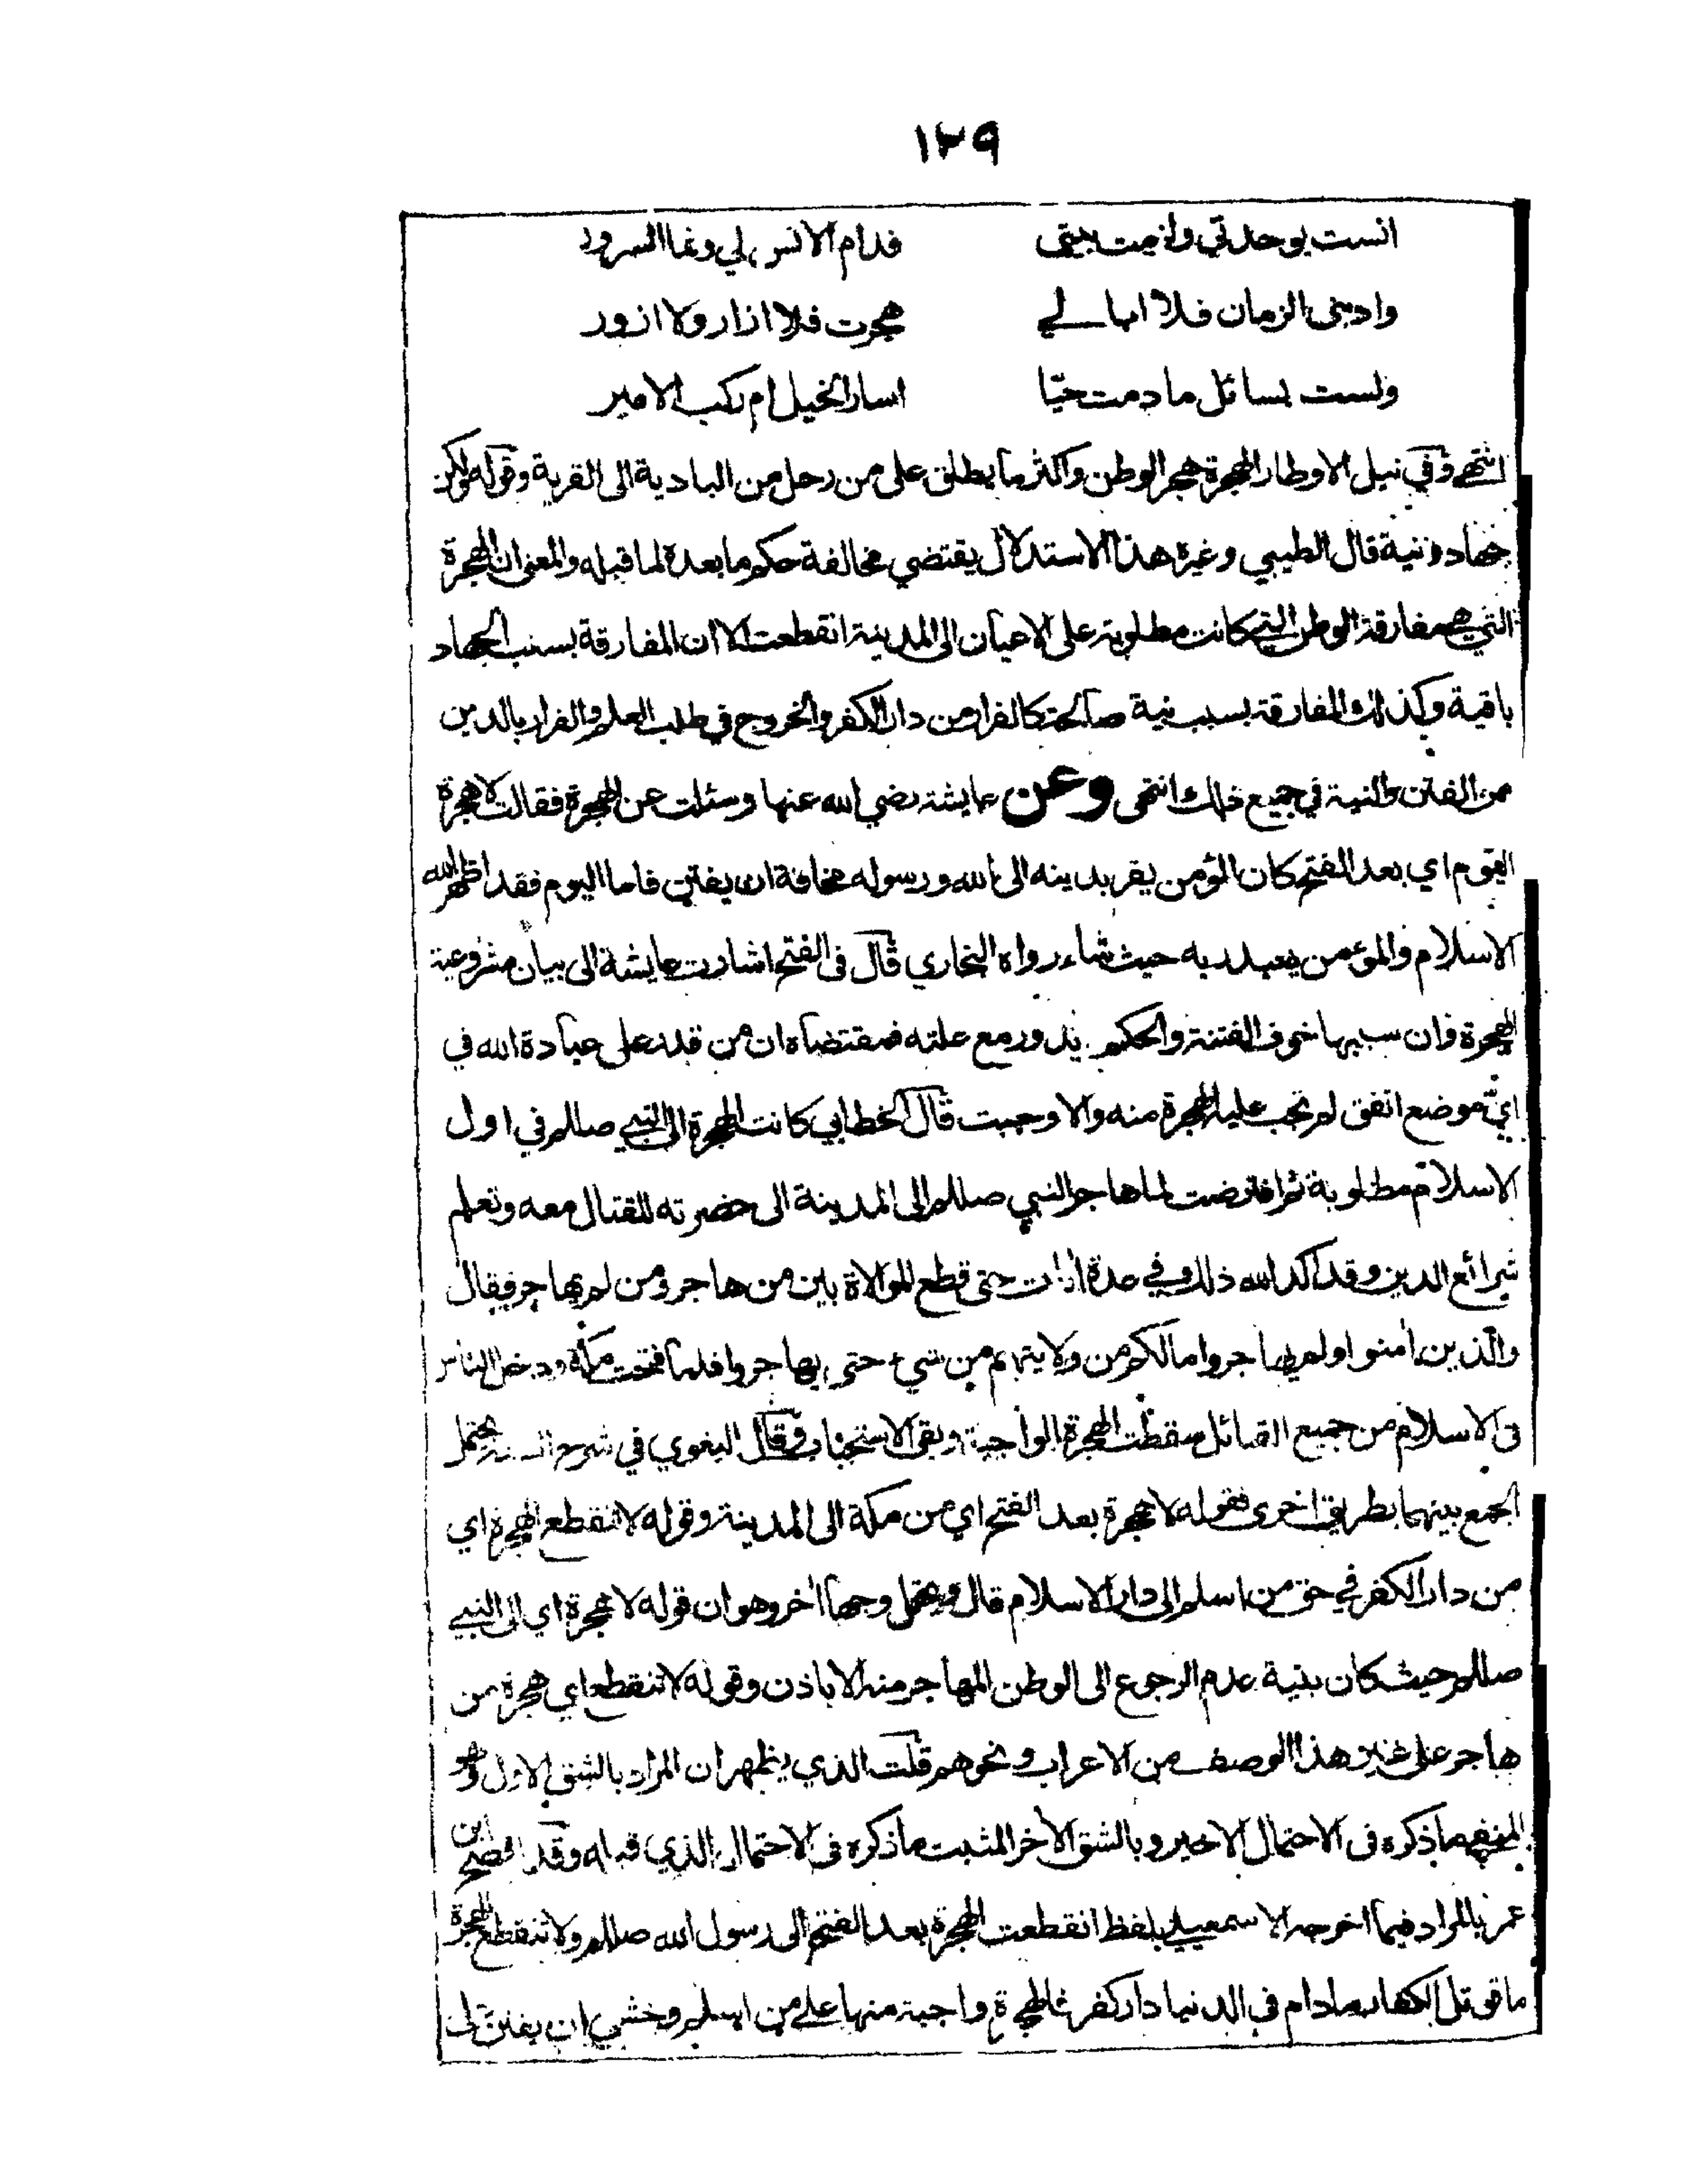 ١٢٩
انست بوحدتي ولزمت بيتى فدام الانس لي ونما السرور
وادبنى الزمان فلا ابالي هجرت فلا ازار ولا ازور
ولست بسائل ما دمت حيّا اسار الخيل ام ركب الامير
انتهى وفي نيل الاوطار الهجرة هجر الوطن واكثر ما يطلق على من رحل من البادية الى القرية وقوله ولكن
جهاد ونية قال الطيبي وغيره هذا الاستدلال يقتضي مخالفة حكم ما بعده لما قبله والمعنى ان الهجرة
التي هي مفارقة الوطن التي كانت مطلوبة على الاعيان الى المدينة انقطعت الا ان المفارقة بسبب الجهاد
باقية وكذلك المفارقة بسبب نية صالحة كالفرار من دار الكفر والخروج في طلب العلم والفرار بالدين
من الفتن والنية في جميع ذلك انتهى وعن عايشة رضي الله عنها وسئلت عن الهجرة فقالت لا هجرة
اليوم اي بعد الفتح كان المؤمن يفر بدينه الى الله ورسوله مخافة ان يفتن فاما اليوم فقد اظهر الله
الاسلام والمؤمن يعبد ربه حيث شاء رواه البخاري قال فى الفتح اشارت عايشة الى بيان مشروعية
الهجرة وان سببها خوف الفتنة والحكم يدور مع علته فمقتضاه ان من قدر على عبادة الله في
ايّ موضع اتفق لم تجب عليه الهجرة منه والا وجبت قال الخطابي كانت الهجرة الى النبي صللم في اول
الاسلام مطلوبة ثم افترضت لما هاجر النبي صللم الى المدينة الى حضرته للقتال معه وتعلم
شرائع الدين وقد اكد الله ذلك في عدة ايات حتى قطع الموالاة بين من هاجر ومن لم يهاجر فقال
والذين امنوا ولم يهاجروا مالكم من ولايتهم من شيء حتى يهاجروا فلما فتحت مكة ودخل الناس
فى الاسلام من جميع القبائل سقطت الهجرة الواجبة وبقى الاستحباب وقال البغوي في شرح السنة يحتمل
الجمع بينهما بطريق اخرى فقوله لا هجرة بعد الفتح اي من مكة الى المدينة وقوله لا تنقطع الهجرة اي
من دار الكفر في حق من اسلم الى دار الاسلام قال ويحتمل وجها اخر وهو ان قوله لا هجرة اي الى النبي
صللم حيث كان بنية عدم الرجوع الى الوطن المهاجر منه الا باذن وقوله لا تنقطع اي هجرة من
هاجر على غير هذا الوصف من الاعراب ونحوهم قلت الذي يظهر ان المراد بالشق الاول وهو
المنفي ما ذكره فى الاحتمال الاخير وبالشق الاخر المثبت ما ذكره فى الاحتمال الذي قبله وقد افصح ابن
عمر بالمراد فيما اخرجه الاسمعيلي بلفظ انقطعت الهجرة بعد الفتح الى رسول الله صللم ولا تنقطع الهجرة
ما قوتل الكفار ما دام في الدنيا دار كفر فالهجرة واجبة منها على من اسلم وخشي ان يفتن